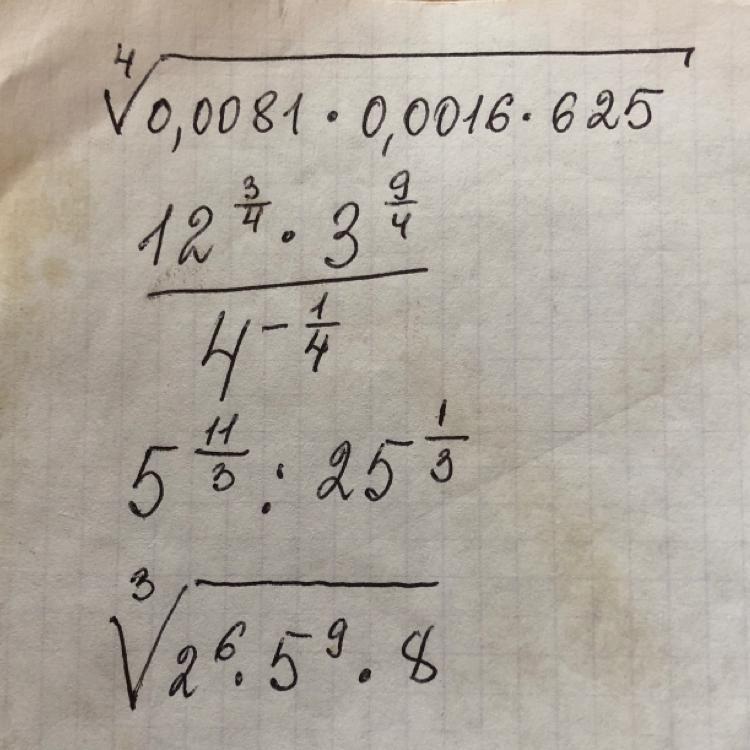 ⁴√(0,0081 · 0,0016 · 625)
(12^(3/4) · 3^(9/4)) / 4^(-1/4)
5^(11/3) : 25^(-1/3)
³√(2⁶ · 5⁹ · 8)